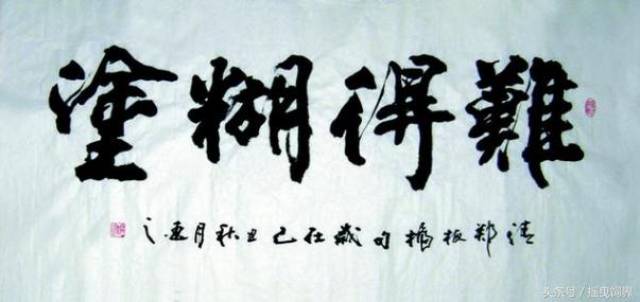 難得糊塗
清郑板橋句歲在己丑秋月
头条号 /